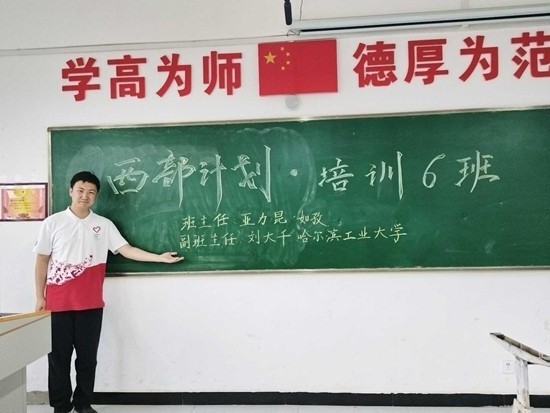 学高为师 德厚为范
西部计划·培训6班
班主任 亚力昆·如孜
副班主任 刘大千 哈尔滨工业大学